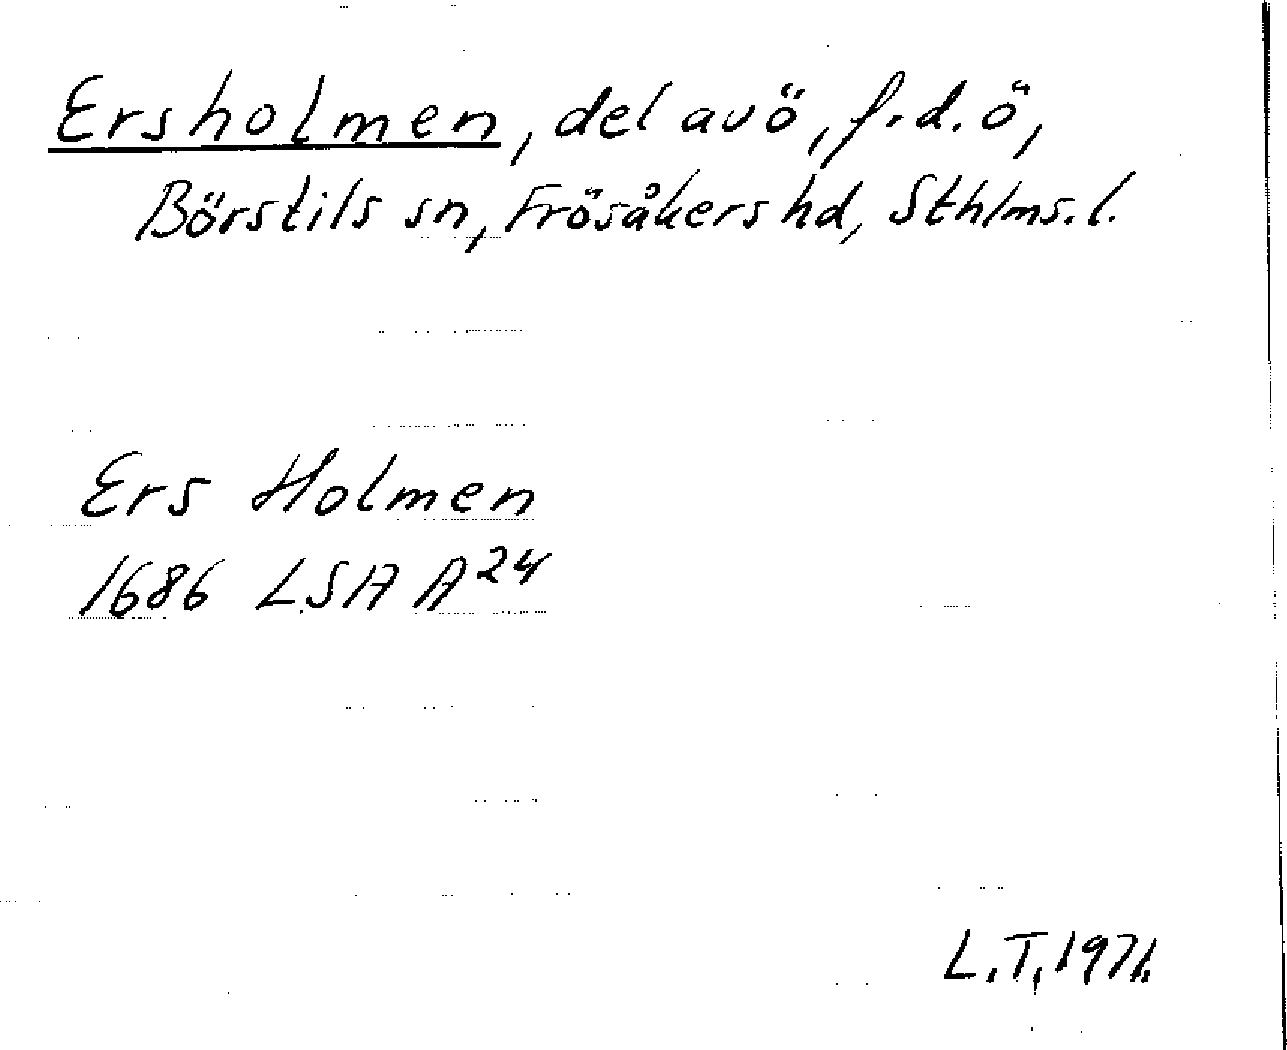 Ersholmen, del av ö, f.d. ö,
Börstils sn, Frösåkers hd, Sthlms. l.
Ers Holmen
1686 LSA A24
L.T. 1971.